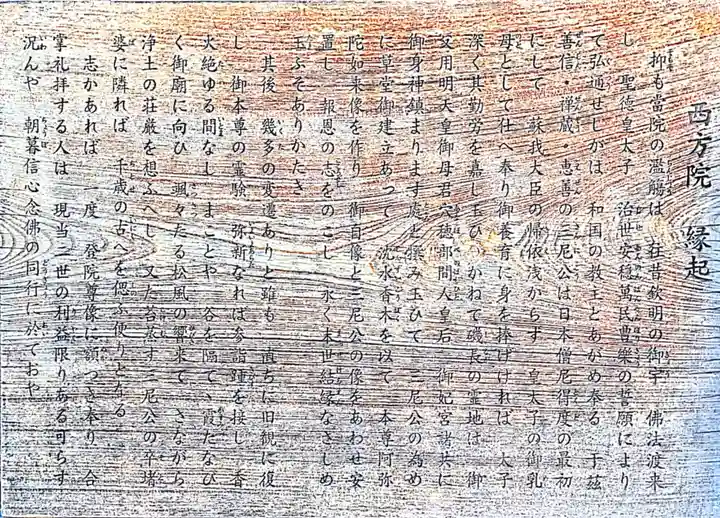 西方院 縁起
抑も當院の濫觴は 往昔欽明の御宇 佛法渡来
し 聖徳皇太子 治世安穏萬民豊樂の誓願により
て弘通せしがは 和国の教主とあがめ奉る 于茲
善信・禅蔵・恵善の三尼公は日本僧尼得度の最初
にして 蘇我大臣の帰依浅からず 皇太子の御乳
母として仕へ奉り御養育に身を捧げければ 太子
深く其勤労を嘉し玉ひ かねて磯長の霊地は 御
父用明天皇御母君穴穂部間人皇后 御妃宮諸共に
御身神鎮まります處と撰み玉ひて 三尼公の為め
に草堂御建立あつて 沈水香木を以て 本尊阿弥
陀如来像を作り 御自像と三尼公の像をあわせ安
置し 報恩の志をのこし 永く末世結縁なさしめ
玉ふそありかたき
其後 幾多の変遷ありと雖も 直ちに旧観に復
し 御本尊の霊験 弥新なれば参詣踵を接し 香
火絶ゆる間なし まことや 谷を隔て、霞たなび
く御廟に向ひ 颯々たる松風の響来て さながら
浄土の荘厳を想ふへし 又た苔蒸す三尼公の卒堵
婆に隣れば 千歳の古へを偲ふ便りとなる
志かあれば 一度 登院尊像に額つき奉り 合
掌礼拝する人は 現当二世の利益限りある可らす
况んや 朝暮信心念佛の同行に於ておや